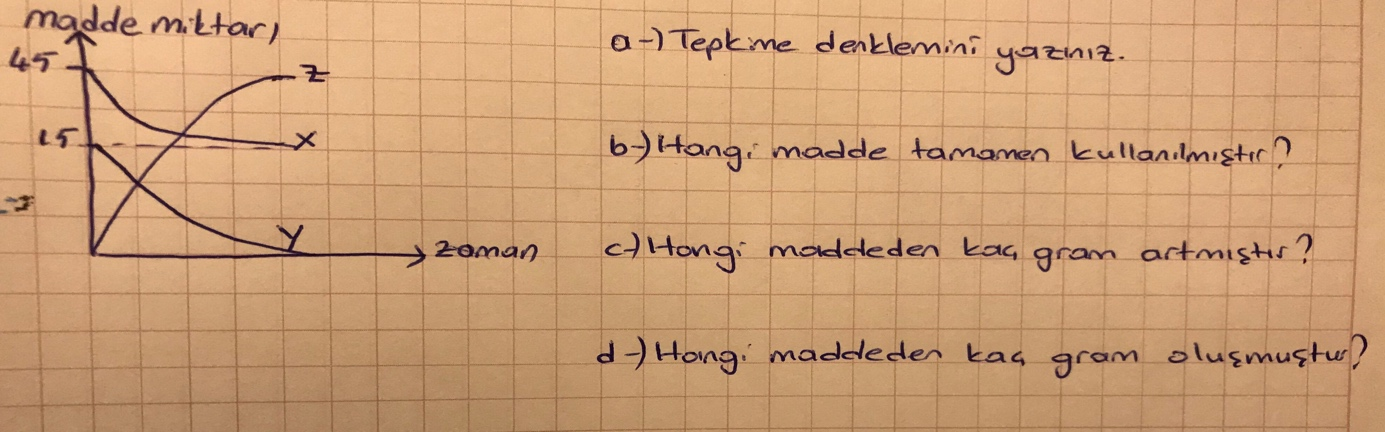 madde miktarı
45
15
Z
X
Y
zaman
a-) Tepkime denklemini yazınız.
b-) Hangi madde tamamen kullanılmıştır?
c-) Hangi maddeden kaç gram artmıştır?
d-) Hangi maddeden kaç gram oluşmuştur?